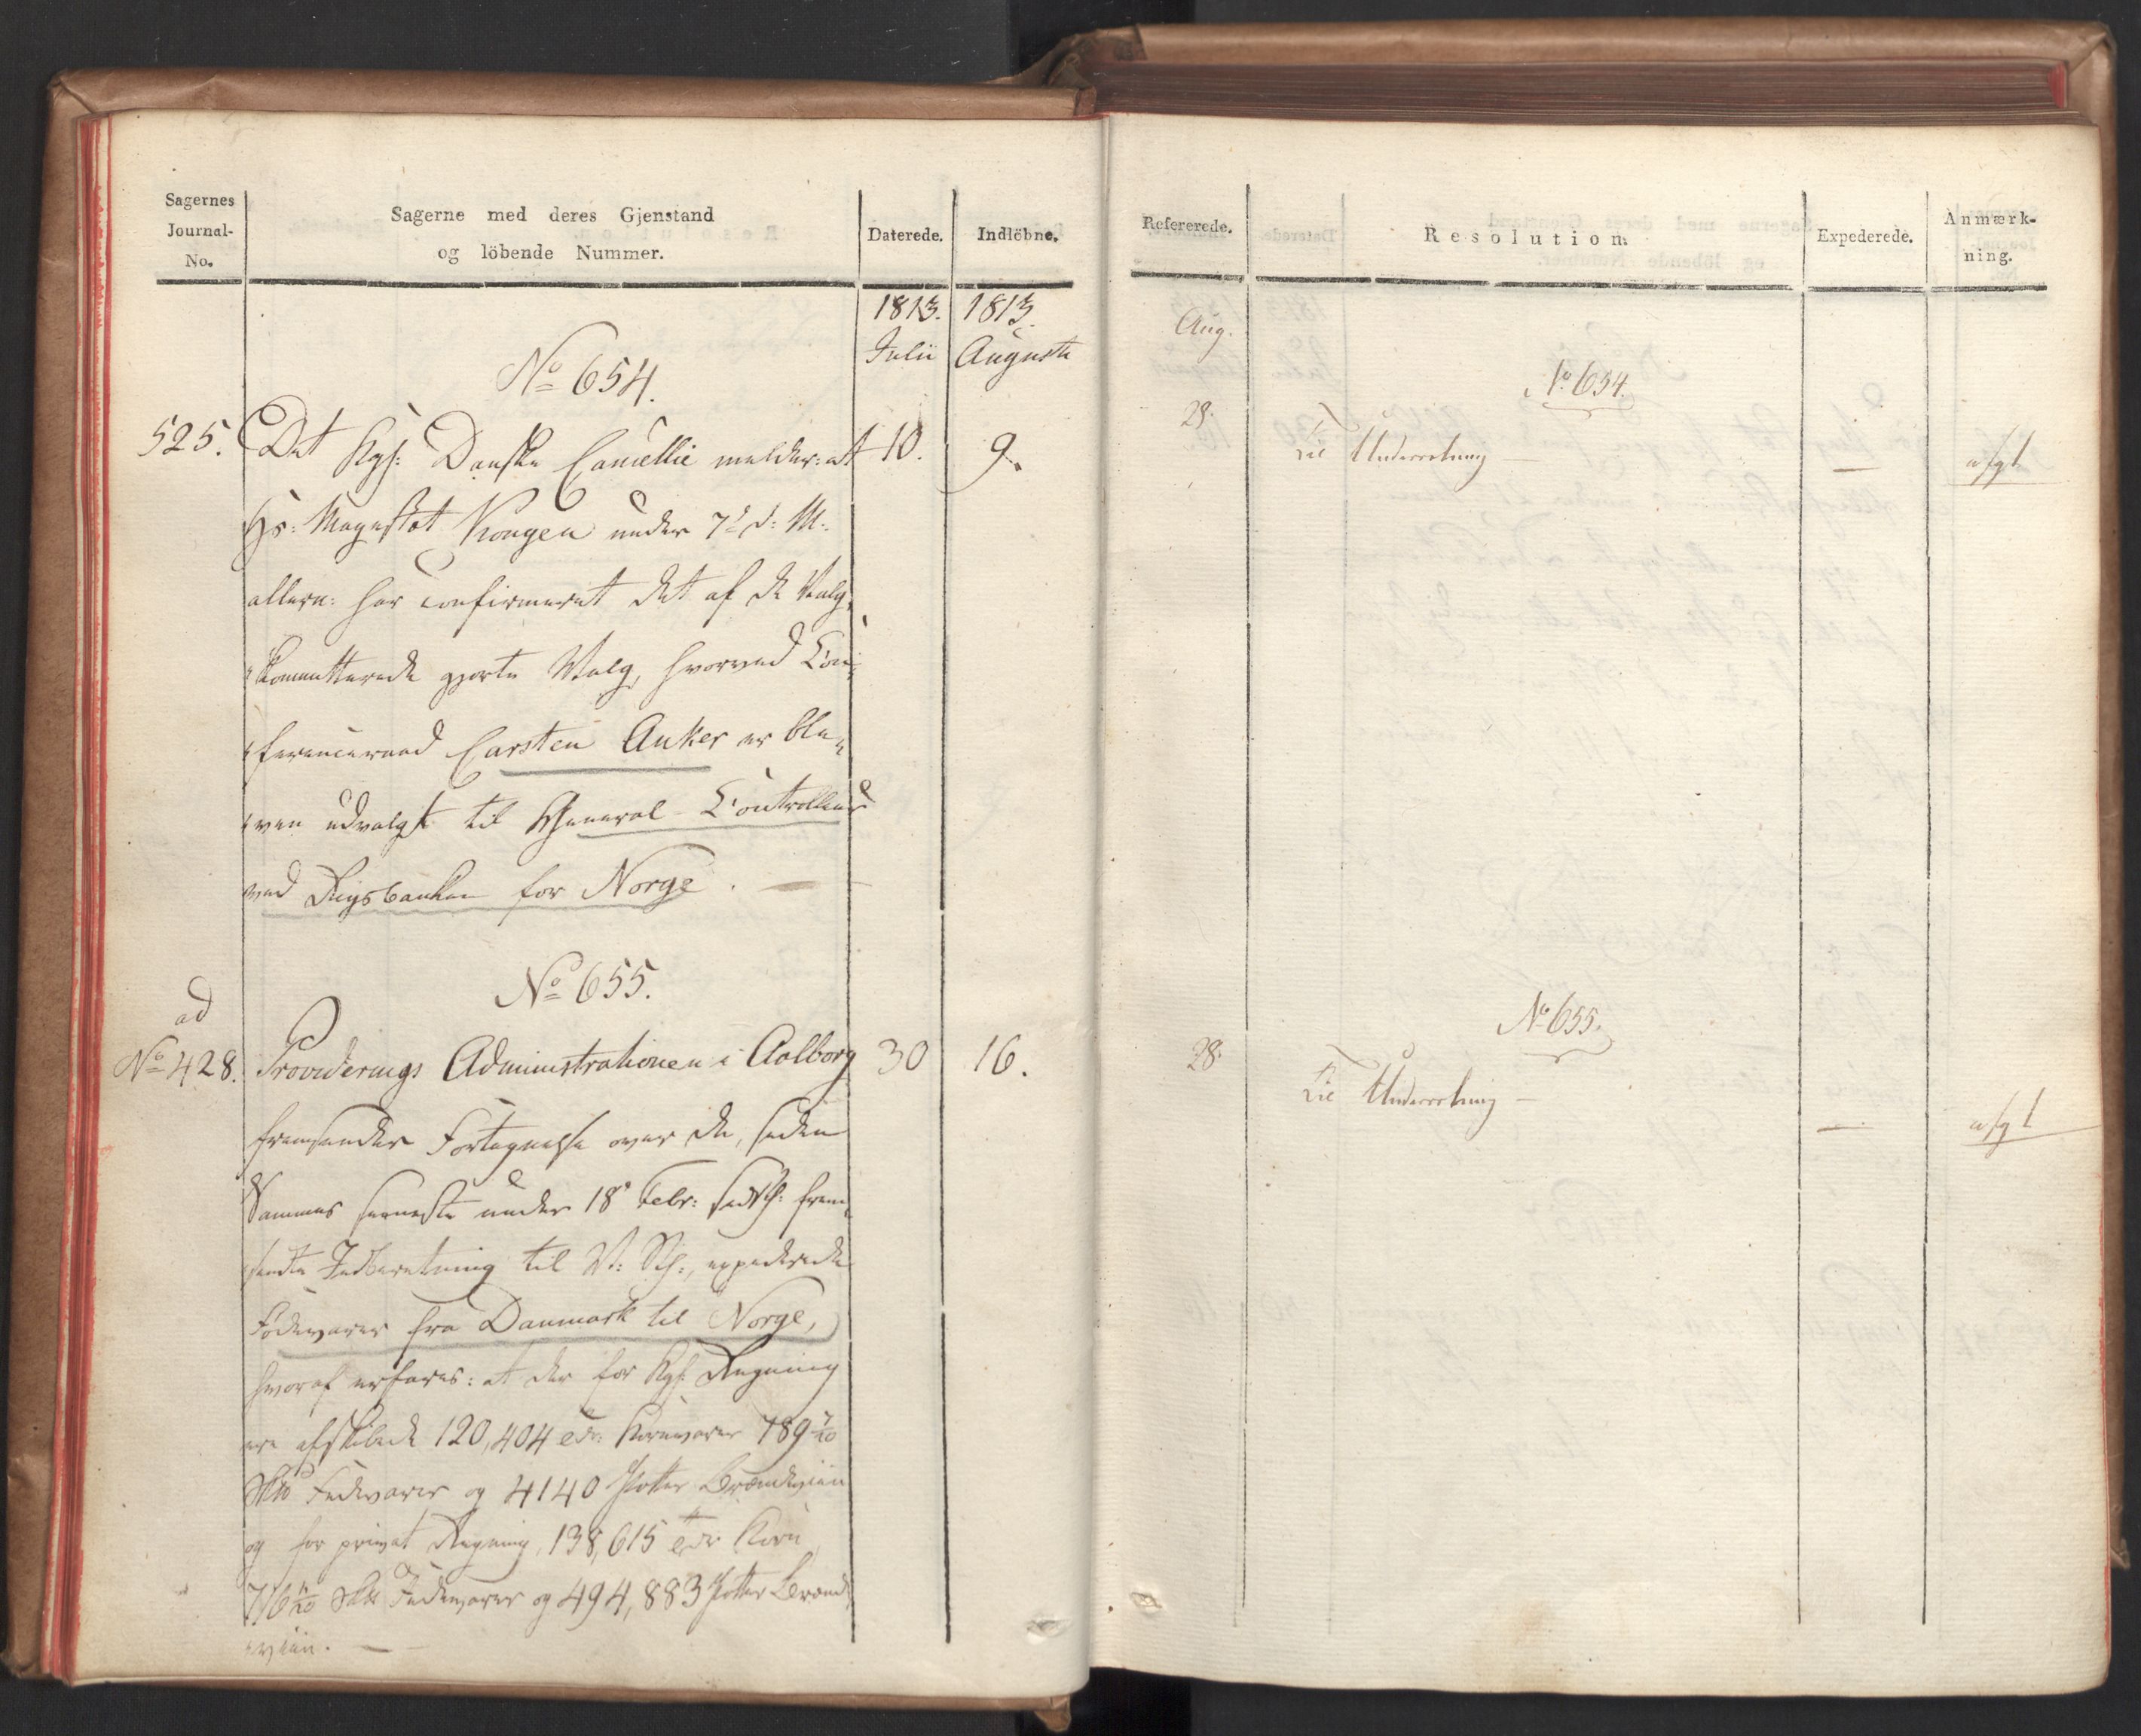 Sagernes
Journal-
No.
Sagerne med deres Gjenstand
og löbende Nummer.
Daterede.
Indlöbne.
1813. 1813.
Julii Augusti
No 654.
525. Det Kgl: Danske Cancellie melder: at 10. 9.
Hs: Mayestæt Kongen under 7de d: M.
allern: har confirmeret det af de Valg-
Committerede gjorte Valg, hvorved Con-
ferenceraad Carsten Anker er ble-
ven udvalgt til General-Controlleur
ved Rigsbanken for Norge. —
No 655.
ad
No 428. Providerings Administrationen i Aalborg 30 16.
fremsender Fortegnelse over de, siden
Sammes seneste under 18de Febr: frem-
sendte Indberetning til expederede
Fødevarer fra Danmark til Norge,
hvoraf erfares: at der for Kgl. Regning
ere afskibede 120,404 Kornvarer 789 7/20
Fedevarer og 4140 Potter Brændeviin
og for privat Regning, 138,615 Korn
Fedevarer og 494,883 Potter Brænde-
viin. —
Refererede.
Resolution.
Expederede.
Anmærk-
ning.
Aug.
No. 654.
28. Til Underretning — — afgl
No 655.
28. Til Underretning — — afgl